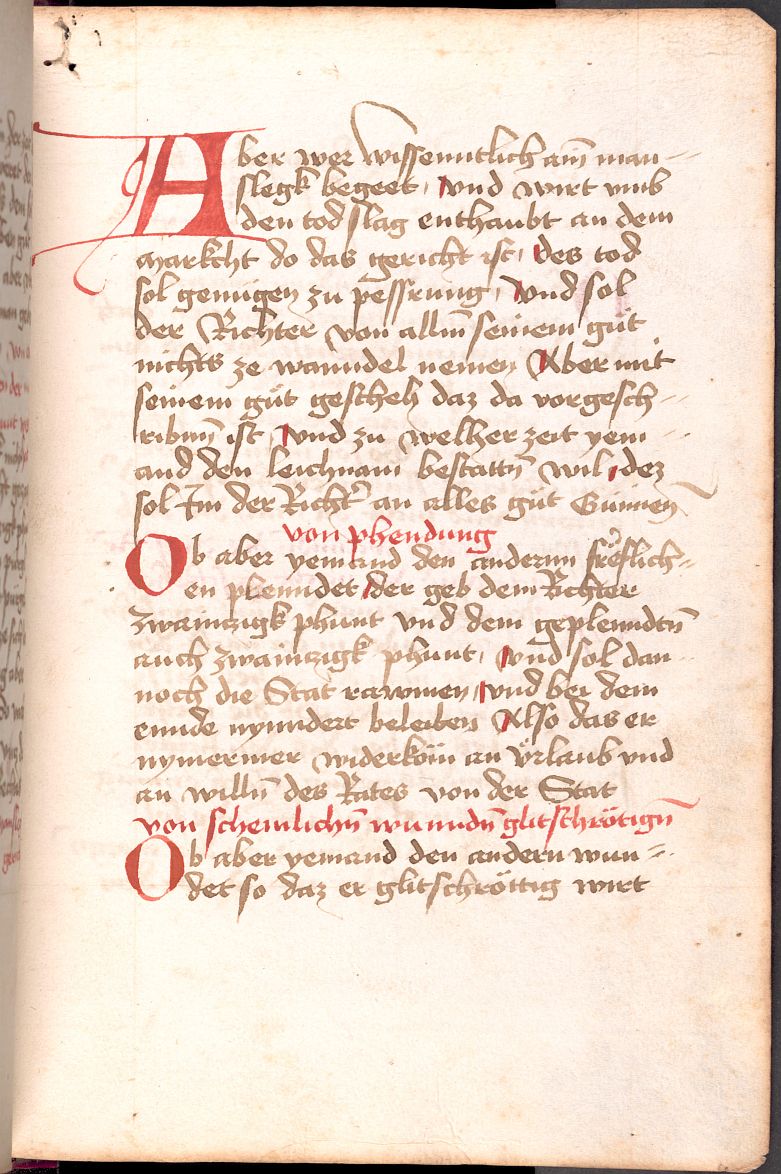 Aber wer wissenntlich ain̄ man-
slegk begeet, vnd wirt vmb
den todslag enthaubt an dem
markcht do das gericht ist, des tod
sol genügen zu pessrung, vnd sol
der Richter von allm̄ seinem gut
nichts ze wanndel nemen Aber mit
seinem gut gescheh daz da vorgesch-
ribnn̄ ist, vnd zu welher zeit yem-
and den leichnam bestattn̄ wil, dez
sol Im der Richtʼ an alles gut Günnen̄
von phendung
Ob aber yemand den andernn freflich-
en plenndet, der geb dem Richter
zwainczigk phunt vnd dem geplenndtn̄
auch zwainczigk phunt, vnd sol dan-
noch die Stat rawmen, vnd bei dem
ennde nynndert beleiben Also das er
nymermer widerköm̄ an vrlaub vnd
an willn̄ des Rates von der Stat
von schemlichn̄ wunndn̄ glitschrötign̄
Ob aber yemand den andern wun-
det so daz er glitschröttig wirt